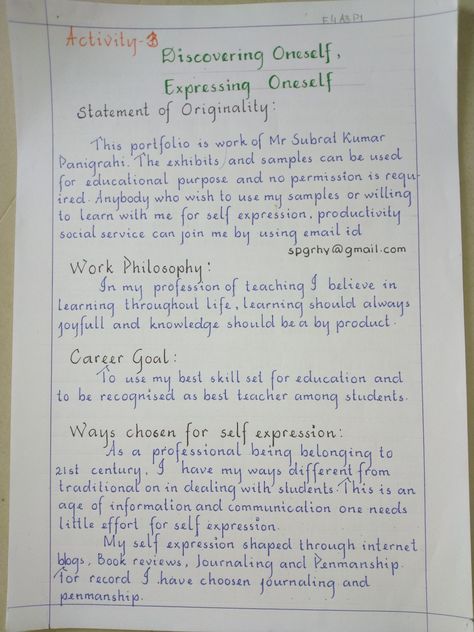 E4A3P1
Activity-3
Discovering Oneself,
Expressing Oneself
Statement of Originality:
This portfolio is work of Mr Subrat Kumar
Panigrahi. The exhibits and samples can be used
for educational purpose and no permission is requ-
ired. Anybody who wish to use my samples or willing
to learn with me for self expression, productivity
social service can join me by using email id
spgrhy@gmail.com
Work Philosophy:
In my profession of teaching I believe in
learning throughout life, learning should always
joyfull and knowledge should be a by product.
Career Goal:
To use my best skill set for education and
to be recognised as best teacher among students.
Ways chosen for self expression:
As a professional being belonging to
21st century, I have my ways different from
traditional on in dealing with students. This is an
age of information and communication one needs
little effort for self expression.
My self expression shaped through internet
blogs, Book reviews, Journaling and Penmanship.
For record I have choosen journaling and
penmanship.